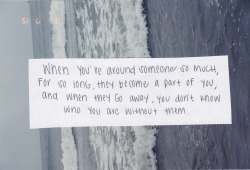 When you're around someone so much,
For so long, they become a part of you,
and when they go away, you don't know
who you are without them.